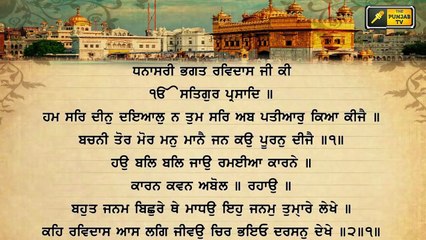 THE
PUNJAB
TV
ਧਨਾਸਰੀ ਭਗਤ ਰਵਿਦਾਸ ਜੀ ਕੀ
ੴ ਸਤਿਗੁਰ ਪ੍ਰਸਾਦਿ ॥
ਹਮ ਸਰਿ ਦੀਨੁ ਦਇਆਲੁ ਨ ਤੁਮ ਸਰਿ ਅਬ ਪਤੀਆਰੁ ਕਿਆ ਕੀਜੈ ॥
ਬਚਨੀ ਤੋਰ ਮੋਰ ਮਨੁ ਮਾਨੈ ਜਨ ਕਉ ਪੂਰਨੁ ਦੀਜੈ ॥੧॥
ਹਉ ਬਲਿ ਬਲਿ ਜਾਉ ਰਮਈਆ ਕਾਰਨੇ ॥
ਕਾਰਨ ਕਵਨ ਅਬੋਲ ॥ ਰਹਾਉ ॥
ਬਹੁਤ ਜਨਮ ਬਿਛੁਰੇ ਥੇ ਮਾਧਉ ਇਹੁ ਜਨਮੁ ਤੁਮ੍ਹਾਰੇ ਲੇਖੇ ॥
ਕਹਿ ਰਵਿਦਾਸ ਆਸ ਲਗਿ ਜੀਵਉ ਚਿਰ ਭਇਓ ਦਰਸਨੁ ਦੇਖੇ ॥੨॥੧॥